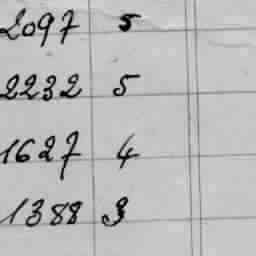 2097 5
2232 5
1627 4
1388 3